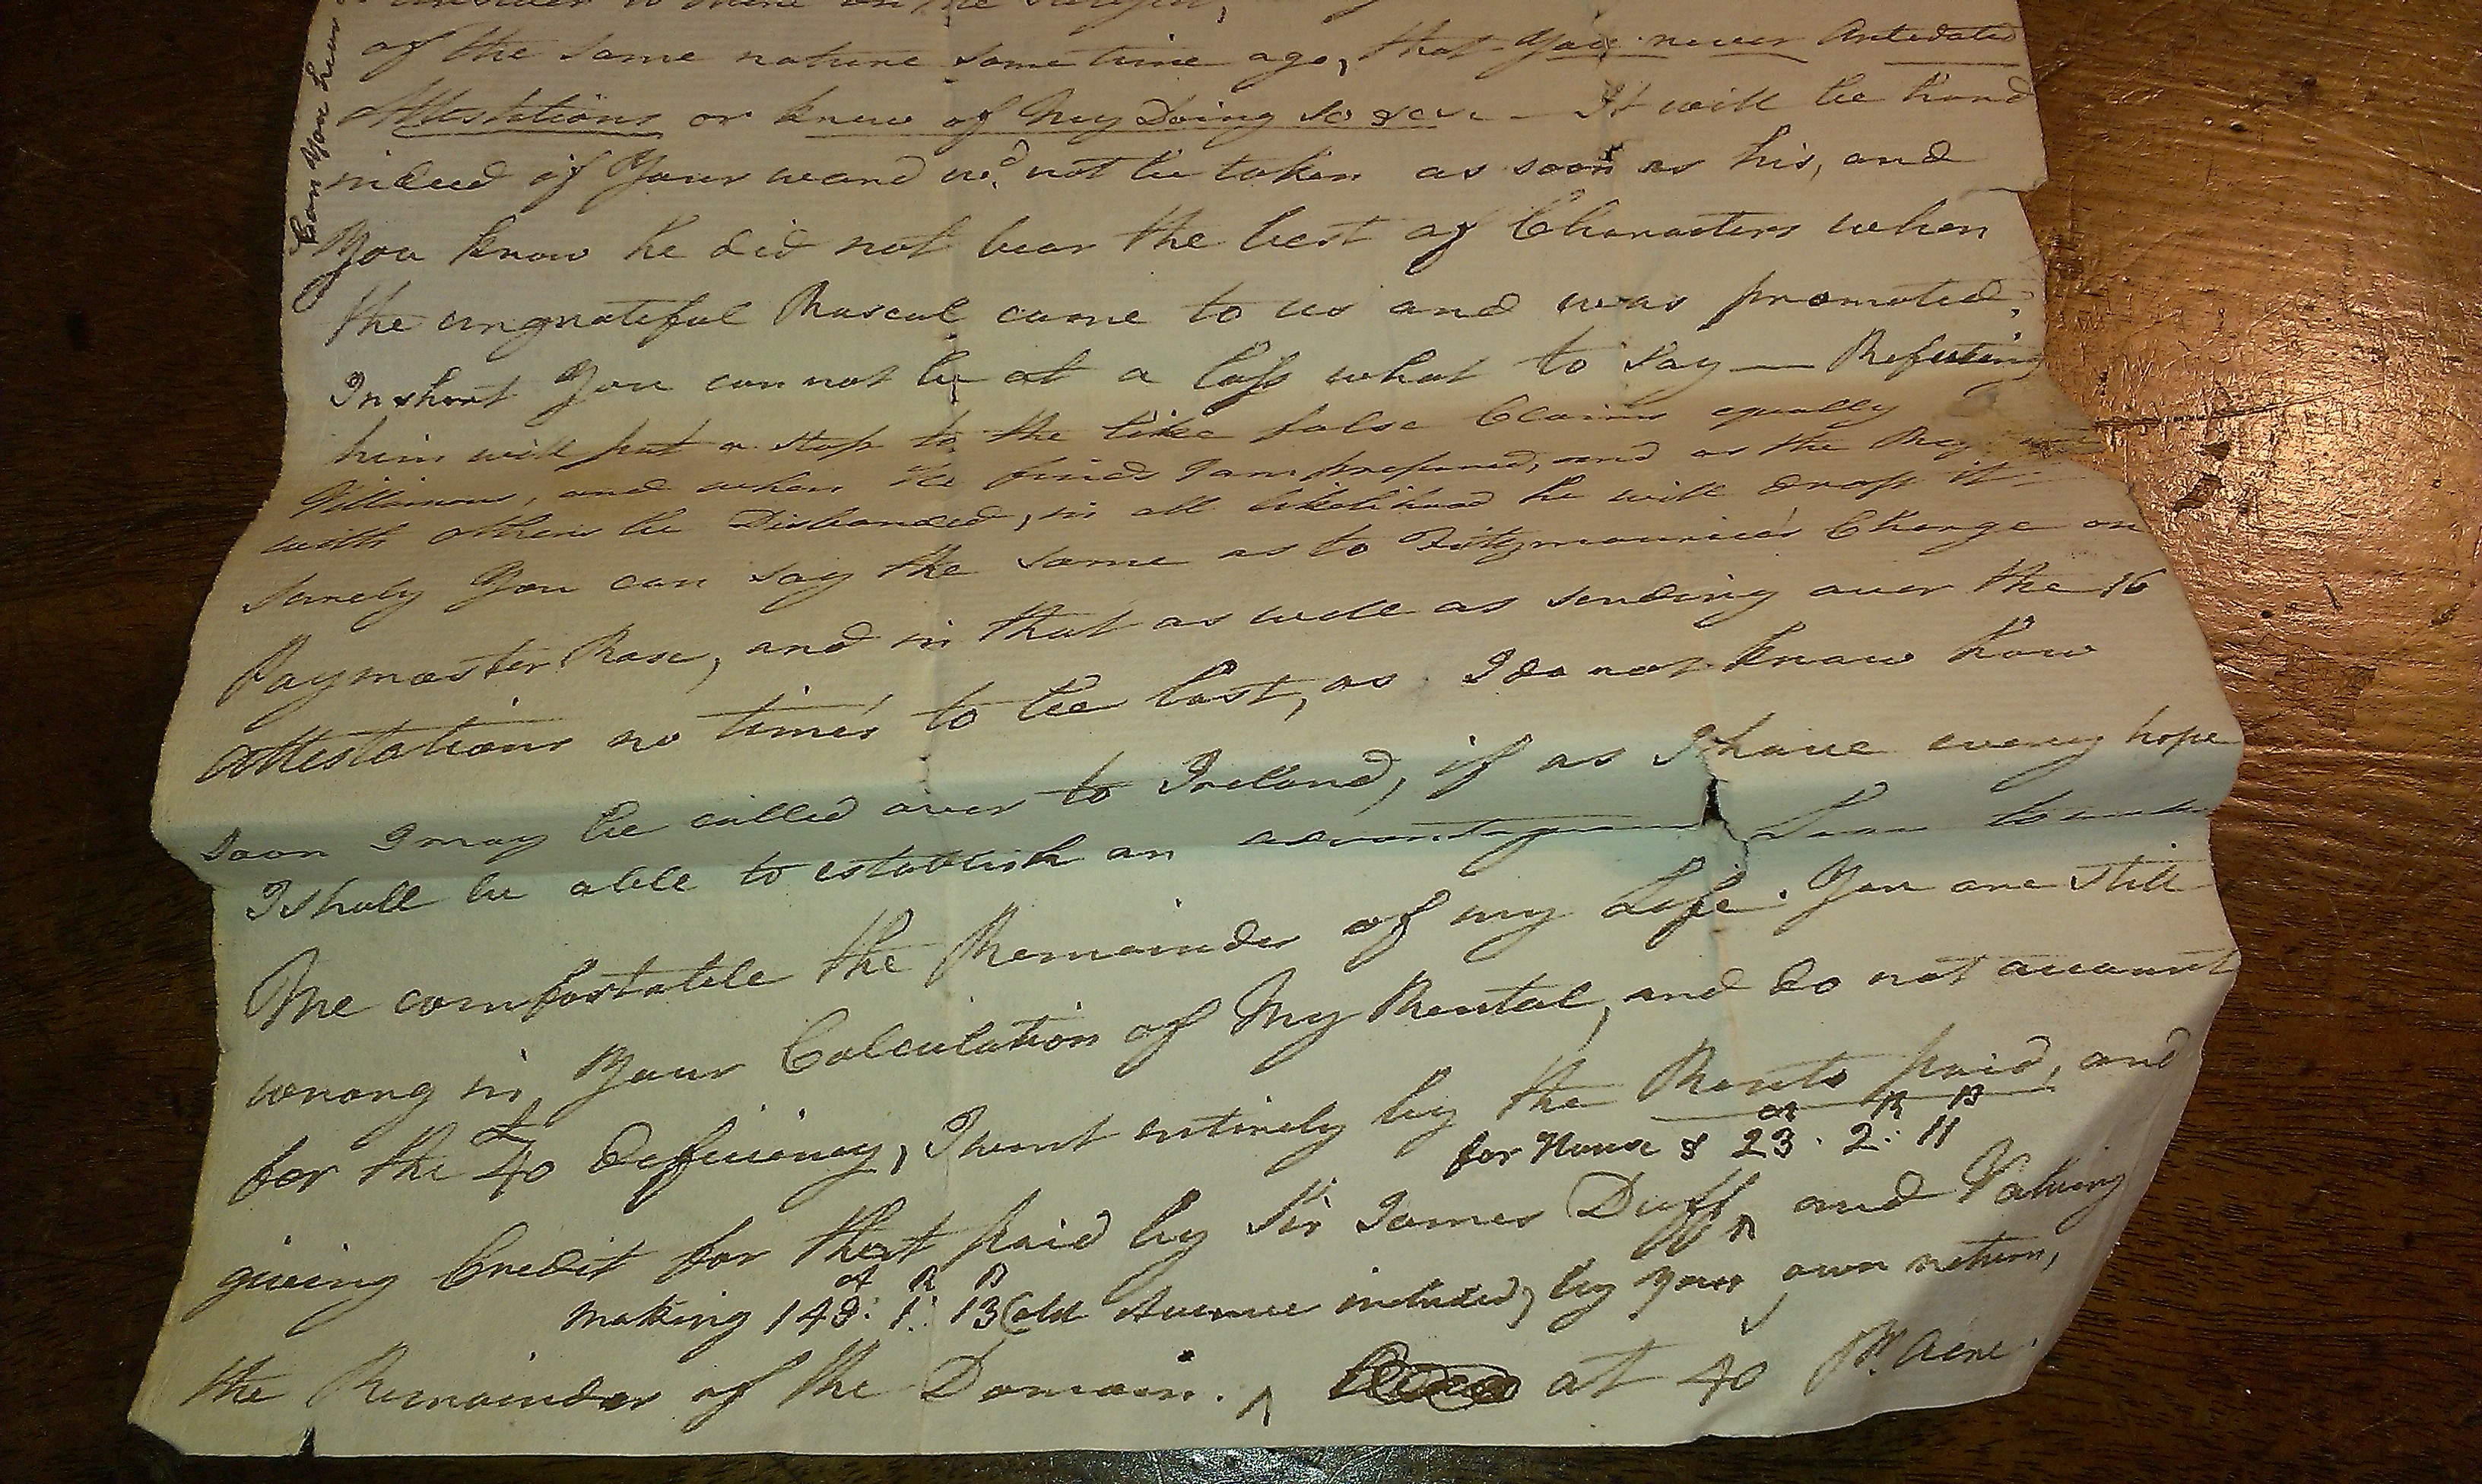 of the same nature some time ago, that You never Antedated
Attestations or knew of My Doing so &
It will be hard
indeed if Your word wd. not be taken as soon as his, and
You know he did not bear the best of Characters when
the ungrateful Rascal came to us and was promoted;
In short You can not be at a loss what to say — Refuting
him will put a stop to the like false Claims equally
Villainous, and when he finds I am prepared, and as the Reg
with others be Disbanded, in all likelihood he will drop it
surely You can say the same as to Fitzmaurice's Charge on
Paymaster Rose, and in that as well as sending over the 16
Attestations no time's to be lost, as I do not know how
soon I may be called over to Ireland, if as I have every hope
I shall be able to establish an
to make
Me comfortable the Remainder of my Life. You are still
wrong in Your Calculation of My Rental, and do not account
for the £40 deficiency, I went entirely by the Rents paid, and
A R P
for House & 23 : 2 : 11
giving Credit for that paid by Sir James Duff ^ and Valuing
A R P
making 143 : 1 : 13 (old Avenue included) by Your own return,
the Remainder of the Domain. ^ at 40 Pr. Acre.
Can You